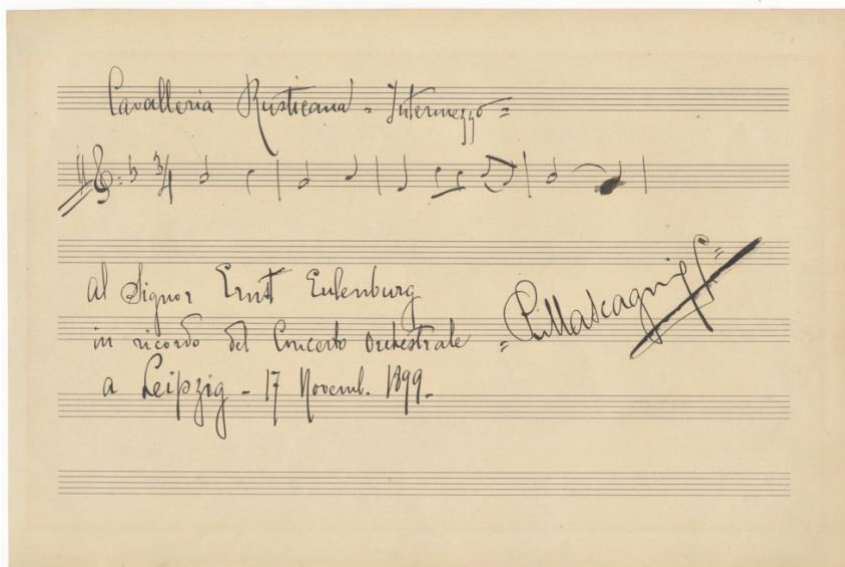 Cavalleria Rusticana - Intermezzo =
3/4
al Signor Ernst Eulenburg
in ricordo del Concerto Orchestrale
= P. Mascagni =
a Leipzig - 17 Novemb. 1899.